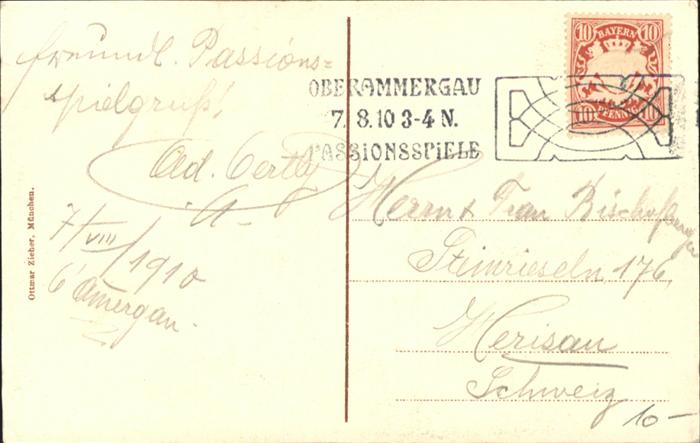 freundl. Passions=
spielgruß!
Ad. Oertly
7/VIII/1910
O'Amergau.
Ottmar Zieher, München.
OBERAMMERGAU
7. 8. 10 3-4 N.
PASSIONSSPIELE
10 BAYERN 10
10 PFENNIG 10
Herrn & Frau Bischofberger
Steinrieseln 176,
Herisau
Schweiz
10-